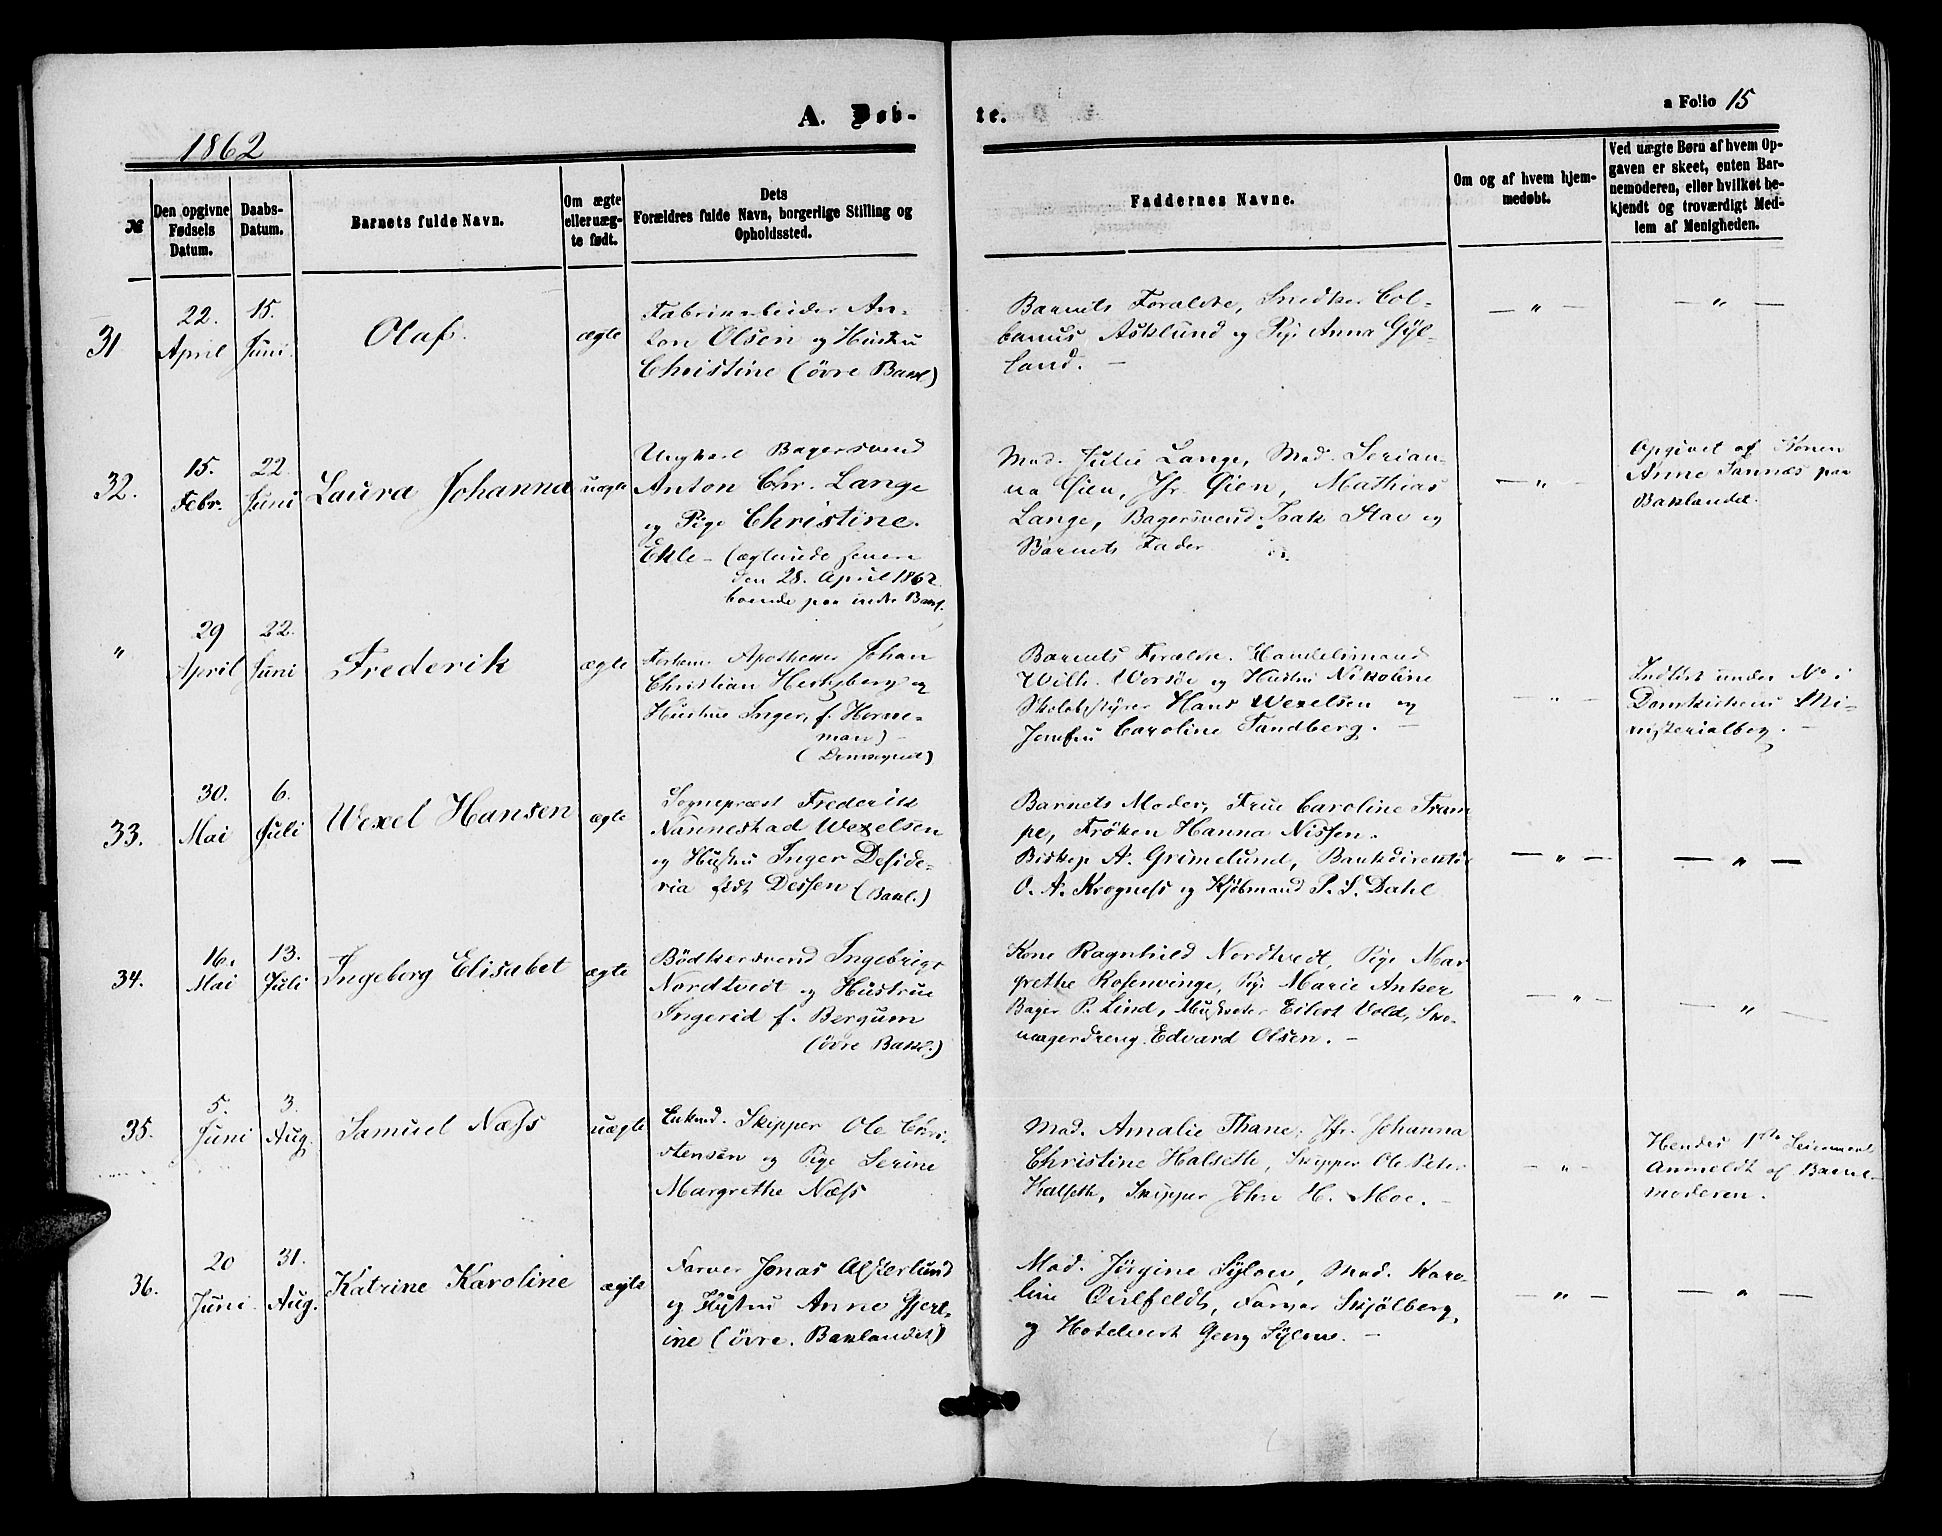 1862
A. Døb-
te.
a Folio 15
№
Den opgivne Fødsels Datum.
Daabs-Datum.
Barnets fulde Navn.
Om ægte eller uægte født.
Dets Forældres fulde Navn, borgerlige Stilling og Opholdssted.
Faddernes Navne.
Om og af hvem hjemmedøbt.
Ved uægte Børn af hvem Opgaven er skeet, enten Barnemoderen, eller hvilket bekjendt og troværdigt Medlem af Menigheden.
31
22. April
15. Juni.
Olaf.
ægte
Fabrikarbeider An-
ton Olsen og Hustru
Christine (øvre Bakl)
Barnets Forældre, Snedker Col-
banus Asklund og Pige Anna Gyl-
land. —
— " —
— " —
32.
15. Febr.
22. Juni
Laura Johanna
uægte
Ungkarl Bagersvend
Anton Chr. Lange
og Pige Christine
Ekle —
den 28. April 1862
boende paa indre Bakl.
Mad. Julie Lange, Mad. Serian-
na Øien, Jfr. Øien, Mathias
Lange, Bagersvend Isak Stav og
Barnets Fader
— " —
Opgivet af Konen
Anne Sannæs paa
Baklandet.
"
29 April
22. Juni
Frederik
ægte
Apotheker Johan
Christian Hertzberg og
Hustrue Inger, f. Horne-
man) —
Barnets Forældre. Handelsmand
Wilh. Worsøe og Hustru Nikoline
Skolebestyrer Hans Wexelsen og
Jomfru Caroline Sandberg. —
— " —
Indført under No i
Domkirkens Mi-
nisterialbog. —
33.
30. Mai
6. Juli
Wexel Hansen
ægte
Sognepræst Frederik
Nannestad Wexelsen
og Hustru Inger Deside-
ria født Dessen (Bakl.)
Barnets Moder, Frue Caroline Tram-
pe, Frøken Hanna Nissen.
Biskop A. Grimelund, Bankdirektør
O. A. Krogness og Kjøbmand P. S. Dahl
— " —
— " —
34.
16. Mai
13. Juli
Ingeborg Elisabet
ægte
Bødkersvend Ingebrigt
Nordtvedt og Hustrue
Ingerid f. Bergum
(øvre Bakl.)
Kone Ragnhild Nordtvedt, Pige Mar-
grethe Rosenvinge, Pige Marie Anker
Bager P. Lind, Musketer Eilert Vold, Sko-
magerdreng Edvard Olsen. —
— " —
— " —
35.
5. Juni
3. Aug.
Samuel Næss
uægte
Enkmd. Skipper Ole Chri-
stensen og Pige Serine
Margrethe Næss
Mad. Amalie Thane, Jfr. Johanna
Christine Halseth, Skipper Ole Peter
Halseth, Skipper Johs H. Moe. —
— " —
Hendes 1ste Leiermaal
Anmeldt af Barne-
moderen.
36.
20 Juni
31. Aug.
Katrine Karoline
ægte
Farver Jonas Alsterlund
og Hustru Anne Gjert-
ine (øvre. Baklandet)
Mad. Jørgine Sylow, Mad. Karo-
line Qvilfeldt, Farver Skjølberg,
og Hotelvert Georg Sylow. —
— " —
— " —